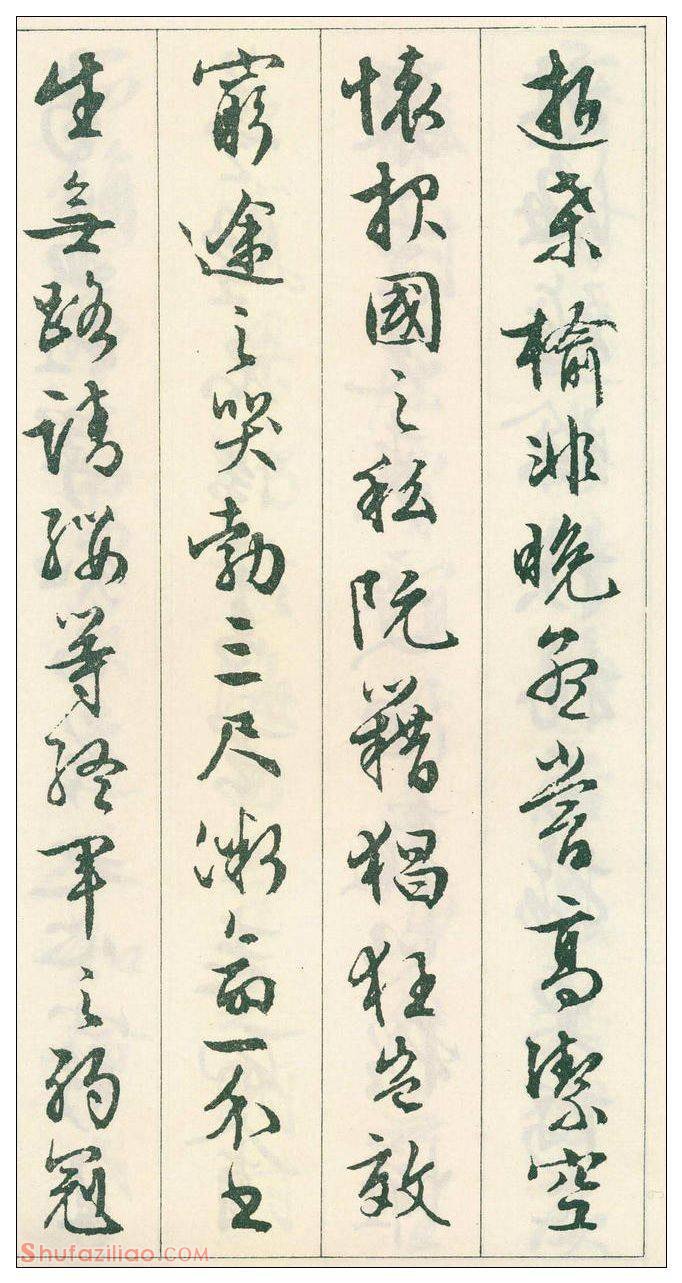 逝桑榆非晚孟嘗高潔空
懷報國之私阮籍猖狂豈效
窮途之哭勃三尺微命一介書
生無路請纓等終軍之弱冠
Shufaziliao.COM